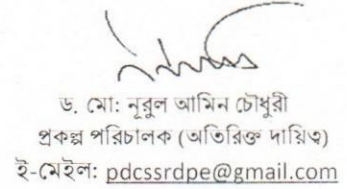 ড. মো: নূরুল আমিন চৌধুরী
প্রকল্প পরিচালক (অতিরিক্ত দায়িত্ব)
ই-মেইল: pdcssrdpe@gmail.com